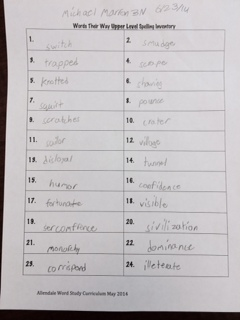 Michael
Words Their Way Upper Level Spelling Inventory
1. switch 2. smudge
3. trapped 4. scrape
5. knotted 6. shaving
7. squirt 8. pounce
9. scratches 10. crater
11. sailor 12. village
13. disloyal 14. tunnel
15. humor 16. confidence
17. fortunate 18. visible
19. 20. civilization
21. 22. dominance
23. correspond 24. illeterate
Allendale Word Study Curriculum May 2014